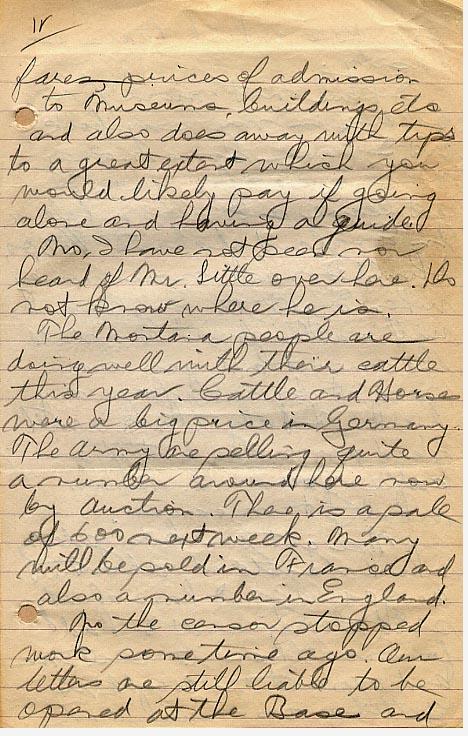 IV
fares, prices of admission
to Museums, buildings, etc
and also does away with tips
to a great extent which you
would likely pay if going
alone and having a guide.
No, I have not seen nor
heard of Mr. Little over here. Do
not know where he is.
The Montana people are
doing well with their cattle
this year. Cattle and Horses
were a big price in Germany.
The Army are selling quite
a number around here now
by auction. There is a sale
of 600 next week. Many
will be sold in France and
also a number in England.
No the censor stopped
work some time ago. Our
letters are still liable to be
opened at the Base and